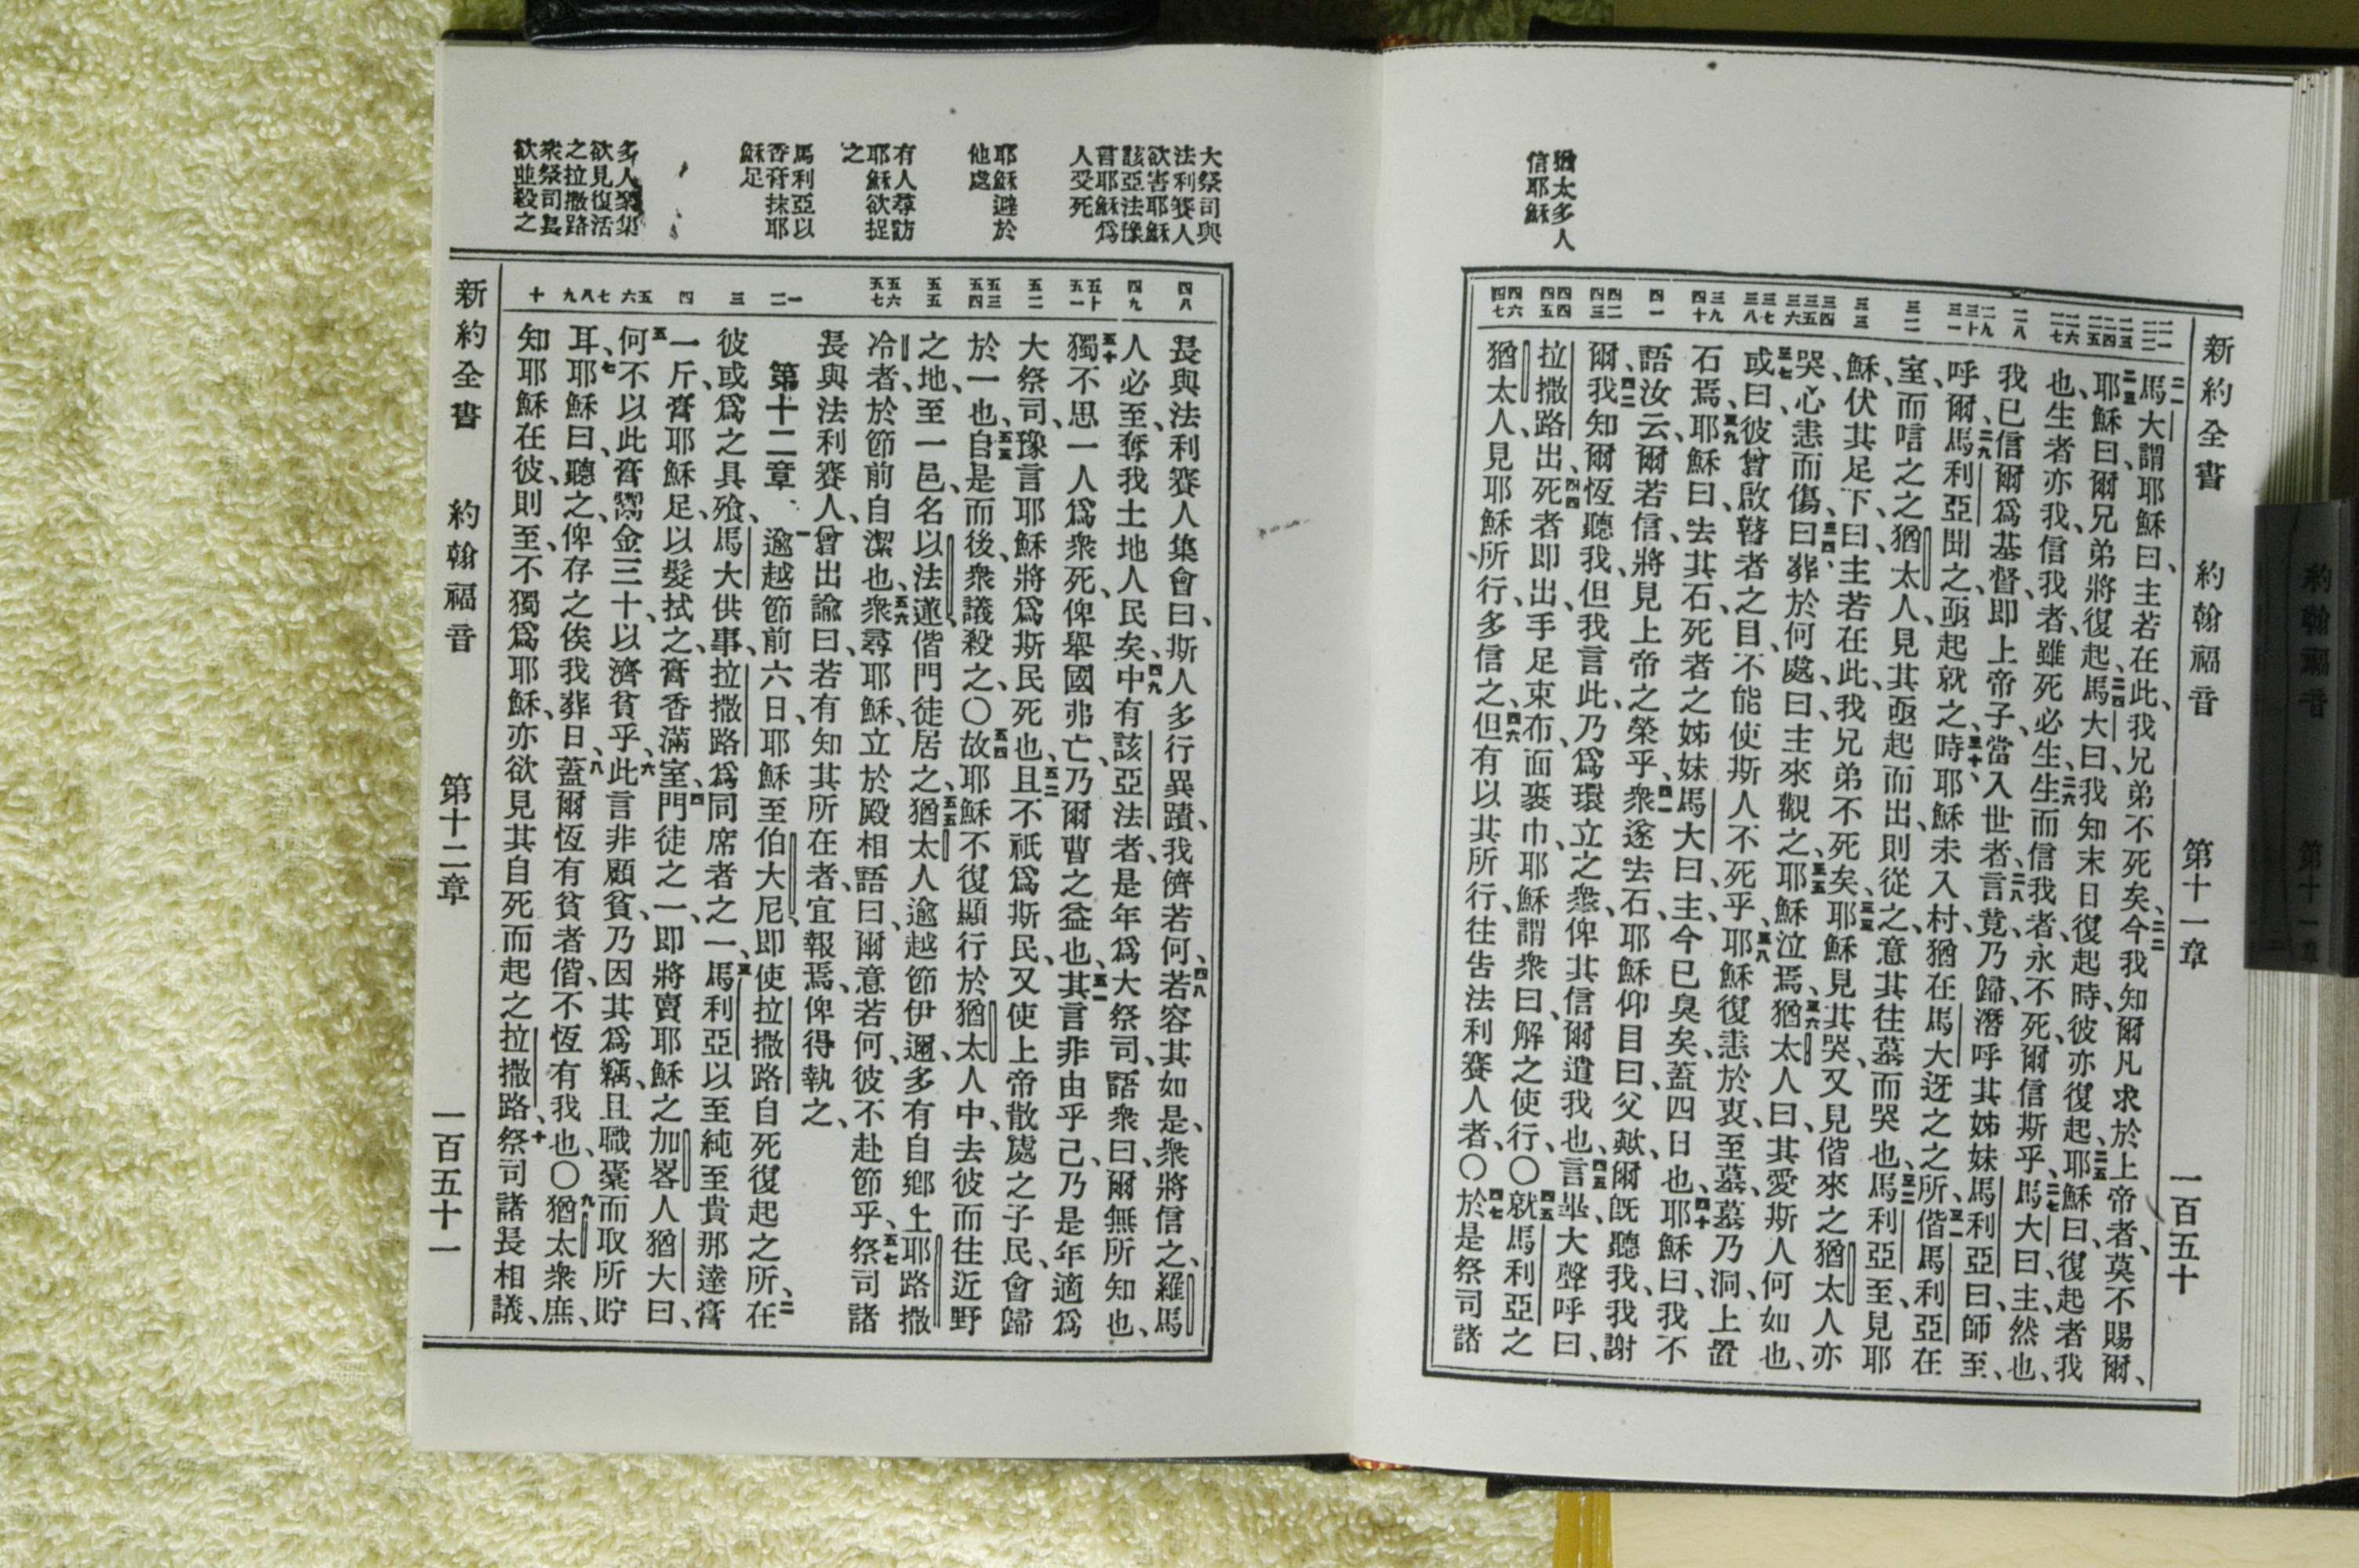 猶太多人
信耶穌
新約全書 約翰福音 第十一章 一百五十
二一 二二 二三 二四 二五 二六 二七 二八 二九 三十 三一 三二 三三 三四 三五 三六 三七 三八 三九 四十 四一 四二 四三 四四 四五 四六 四七
二一馬大謂耶穌曰、主若在此、我兄弟不死矣、二二今我知爾凡求於上帝者、莫不賜爾、
二三耶穌曰、爾兄弟將復起、二四馬大曰、我知末日復起時、彼亦復起、二五耶穌曰、復起者我
也、生者亦我、信我者、雖死必生、二六生而信我者、永不死、爾信斯乎、二七馬大曰、主、然也、
我已信爾爲基督、即上帝子、當入世者、二八言竟、乃歸、潛呼其姊妹馬利亞曰、師至、
呼爾、二九馬利亞聞之、亟起就之、三十時、耶穌未入村、猶在馬大迓之之所、三一偕馬利亞在
室、而唁之之猶太人、見其亟起而出、則從之、意其往墓而哭也、三二馬利亞至、見耶
穌、伏其足下、曰、主若在此、我兄弟不死矣、三三耶穌見其哭、又見偕來之猶太人亦
哭、心恚而傷、三四曰、葬於何處、曰、主來觀之、三五耶穌泣焉、三六猶太人曰、其愛斯人何如也、
三七或曰、彼曾啟瞽者之目、不能使斯人不死乎、三八耶穌復恚於衷、至墓、墓乃洞、上置
石焉、三九耶穌曰、去其石、死者之姊妹馬大曰、主、今已臭矣、蓋四日也、四十耶穌曰、我不
語汝云、爾若信、將見上帝之榮乎、四一衆遂去石、耶穌仰目曰、父歟、爾旣聽我、我謝
爾、四二我知爾恆聽我、但我言此、乃爲環立之衆、俾其信爾遣我也、四三言畢、大聲呼曰、
拉撒路出、四四死者即出、手足束布、面裹巾、耶穌謂衆曰、解之使行、〇四五就馬利亞之
猶太人、見耶穌所行、多信之、四六但有以其所行、往告法利賽人者、〇四七於是祭司諸
大祭司與
法利賽人
欲害耶穌
該亞法豫
言耶穌爲
人受死
耶穌避於
他處
有人尋訪
耶穌欲捉
之
馬利亞以
香膏抹耶
穌足
多人聚集
欲見復活
之拉撒路
衆祭司長
欲並殺之
四八 四九 五十 五一 五二 五三 五四 五五 五六 五七 一 二 三 四 五 六 七 八 九 十
長與法利賽人集會曰、斯人多行異蹟、我儕若何、四八若容其如是、衆將信之、羅馬
人必至、奪我土地人民矣、四九中有該亞法者、是年爲大祭司、語衆曰、爾無所知也、
五十獨不思一人爲衆死、俾舉國弗亡、乃爾曹之益也、五一其言非由乎己、乃是年適爲
大祭司、豫言耶穌將爲斯民死也、五二且不祇爲斯民、又使上帝散處之子民、會歸
於一也、五三自是而後、衆議殺之、〇五四故耶穌不復顯行於猶太人中、去彼而往近野
之地、至一邑、名以法蓮、偕門徒居之、五五猶太人逾越節伊邇、多有自鄉上耶路撒
冷者、於節前自潔也、五六衆尋耶穌、立於殿、相語曰、爾意若何、彼不赴節乎、五七祭司諸
長與法利賽人、曾出諭曰、若有知其所在者、宜報焉、俾得執之、
第十二章 一逾越節前六日、耶穌至伯大尼、即使拉撒路自死復起之所、二在
彼或爲之具飧、馬大供事、拉撒路爲同席者之一、三馬利亞以至純至貴那達膏
一斤、膏耶穌足、以髮拭之、膏香滿室、四門徒之一、即將賣耶穌之加畧人猶大曰、
五何不以此膏鬻金三十、以濟貧乎、六此言非顧貧、乃因其爲竊、且職橐而取所貯
耳、七耶穌曰、聽之、俾存之俟我葬日、八蓋爾恆有貧者偕、不恆有我也、〇九猶太衆庶、
知耶穌在彼、則至、不獨爲耶穌、亦欲見其自死而起之拉撒路、十祭司諸長相議、
新約全書 約翰福音 第十二章 一百五十一